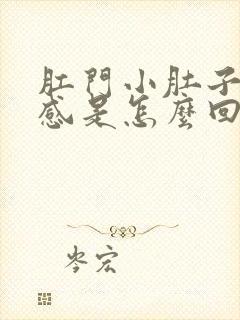 肛門小肚子
感是怎麼回
岑宏